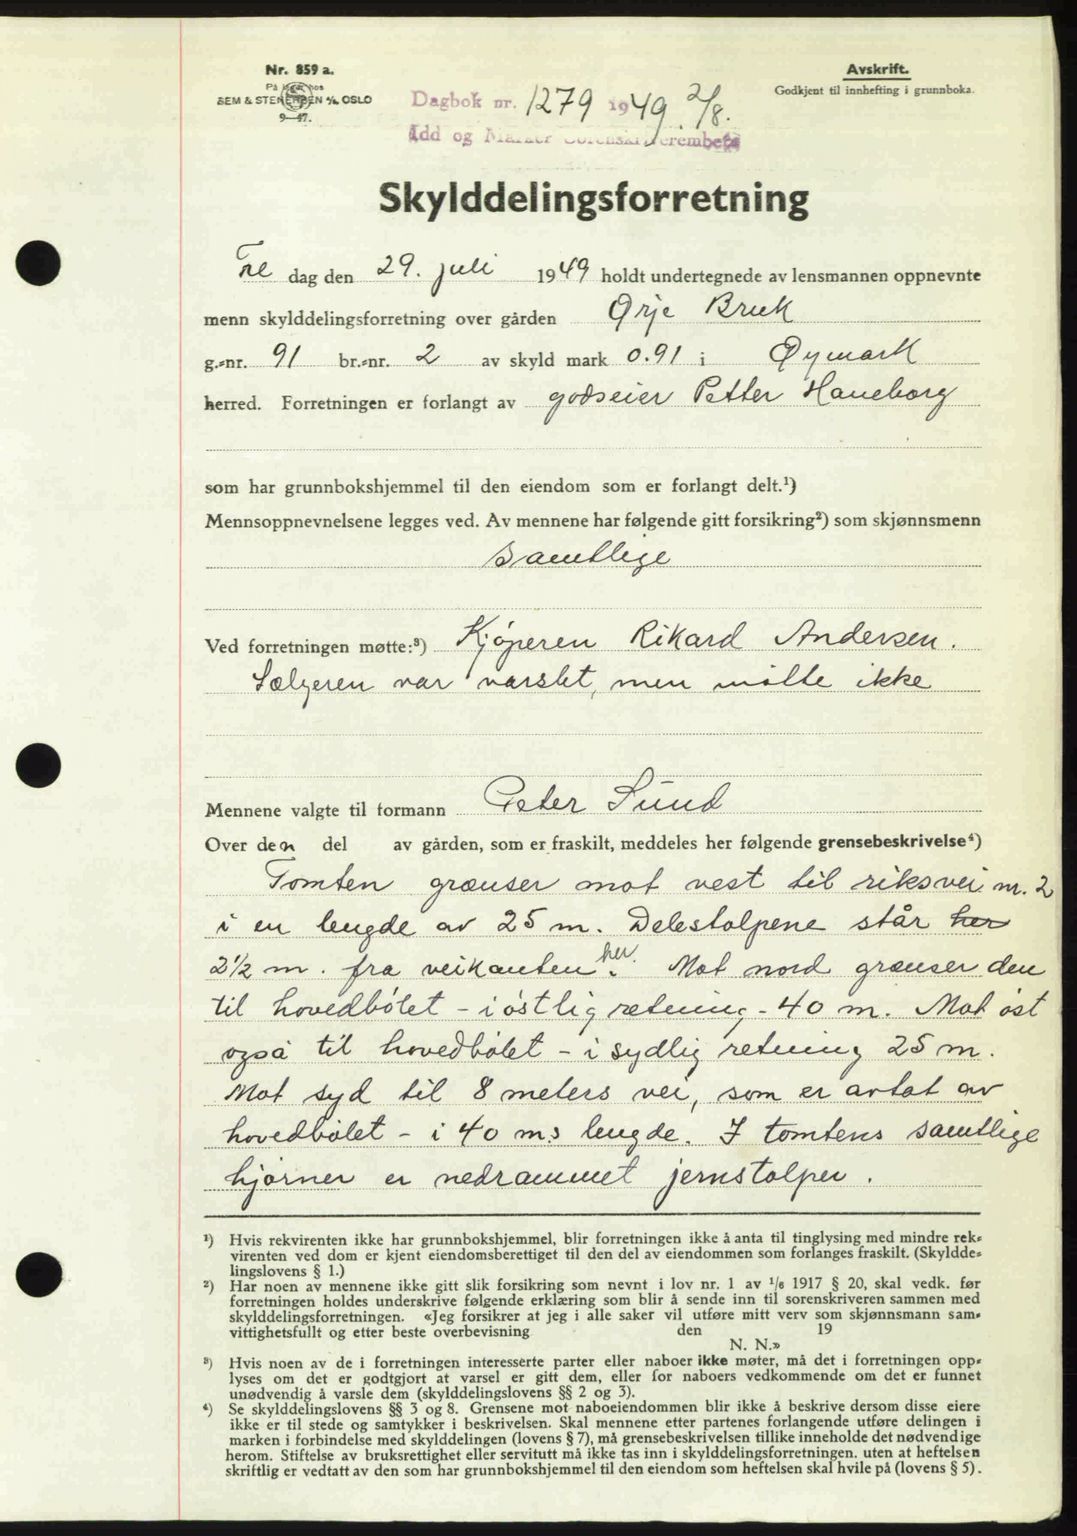 Nr. 859 a.
På lager hos
SEM & STENERSEN A/S OSLO
9–47.
Avskrift.
Godkjent til innhefting i grunnboka.
Dagbok nr. 1279 1949 2/8.
Idd og Marker Sorenskriverembete
Skylddelingsforretning
Fre dag den 29. juli 1949 holdt undertegnede av lensmannen oppnevnte
menn skylddelingsforretning over gården Ørje Bruk
g.-nr. 91 br.-nr. 2 av skyld mark 0.91 i Øymark
herred. Forretningen er forlangt av godseier Petter Haneborg
som har grunnbokshjemmel til den eiendom som er forlangt delt.¹)
Mennsoppnevnelsene legges ved. Av mennene har følgende gitt forsikring²) som skjønnsmenn
Samtlige
Ved forretningen møtte:³) Kjöperen Rikard Andersen.
Sælgeren var varslet, men mötte ikke
Mennene valgte til formann Peter Sund
Over den del av gården, som er fraskilt, meddeles her følgende grensebeskrivelse⁴)
Tomten grænser mot vest til riksvei nr. 2
i en lengde av 25 m. Delestolpene står her
2½ m. fra veikanten her. Mot nord grænser den
til hovedbölet - i östlig retning - 40 m. Mot öst
også til hovedbölet - i sydlig retning 25 m.
Mot syd til 8 meters vei, som er avtat av
hovedbölet - i 40 m.s lengde. I tomtens samtlige
hjörner er nedrammet jernstolper.
¹) Hvis rekvirenten ikke har grunnbokshjemmel, blir forretningen ikke å anta til tinglysing med mindre rek-
virenten ved dom er kjent eiendomsberettiget til den del av eiendommen som forlanges fraskilt. (Skyldde-
lingslovens § 1.)
²) Har noen av mennene ikke gitt slik forsikring som nevnt i lov nr. 1 av 1/6 1917 § 20, skal vedk. før
forretningen holdes underskrive følgende erklæring som blir å sende inn til sorenskriveren sammen med
skylddelingsforretningen. «Jeg forsikrer at jeg i alle saker vil utføre mitt verv som skjønnsmann sam-
vittighetsfullt og etter beste overbevisning den 19
N. N.»
³) Hvis noen av de i forretningen interesserte parter eller naboer ikke møter, må det i forretningen opp-
lyses om det er godtgjort at varsel er gitt dem, eller for naboers vedkommende om det er funnet
unødvendig å varsle dem (skylddelingslovens §§ 2 og 3).
⁴) Se skylddelingslovens §§ 3 og 8. Grensene mot naboeiendommen blir ikke å beskrive dersom disse eiere
ikke er til stede og samtykker i beskrivelsen. Skal mennene etter partenes forlangende utføre delingen i
marken i forbindelse med skylddelingen (lovens § 7), må grensebeskrivelsen tillike inneholde det nødvendige
herom. Stiftelse av bruksrettighet eller servitutt må ikke tas inn i skylddelingsforretningen, uten at heftelsen
skriftlig er vedtatt av den som har grunnbokshjemmel til den eiendom som heftelsen skal hvile på (lovens § 5).